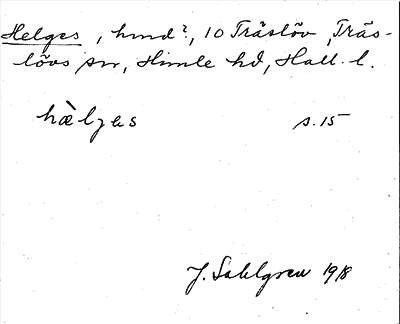 Helges, hmd?, 10 Träslöv, Träs-
lövs sn, Himle hd, Hall. l.
hæ̀lgəs s. 15
J. Sahlgren 1918